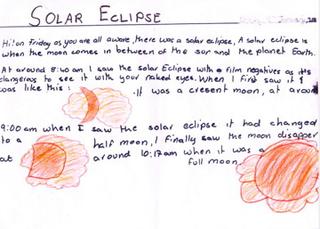 SOLAR ECLIPSE
January
Hi! on Friday as you all aware, there was a solar eclipse, A solar eclipse is
when the moon comes in between of the sor and the planet Earth.
At around 8:40 am I saw the solar Eclipse with a film negatives as it's
dangerous to see it with your naked eyes. When I first saw it
was like this: It was a cresent moon, at arou
9:00 am when I saw the solar eclipse it had changed
to a half moon, I finally saw the moon disapper
at around 10:17am when it was a
full moon